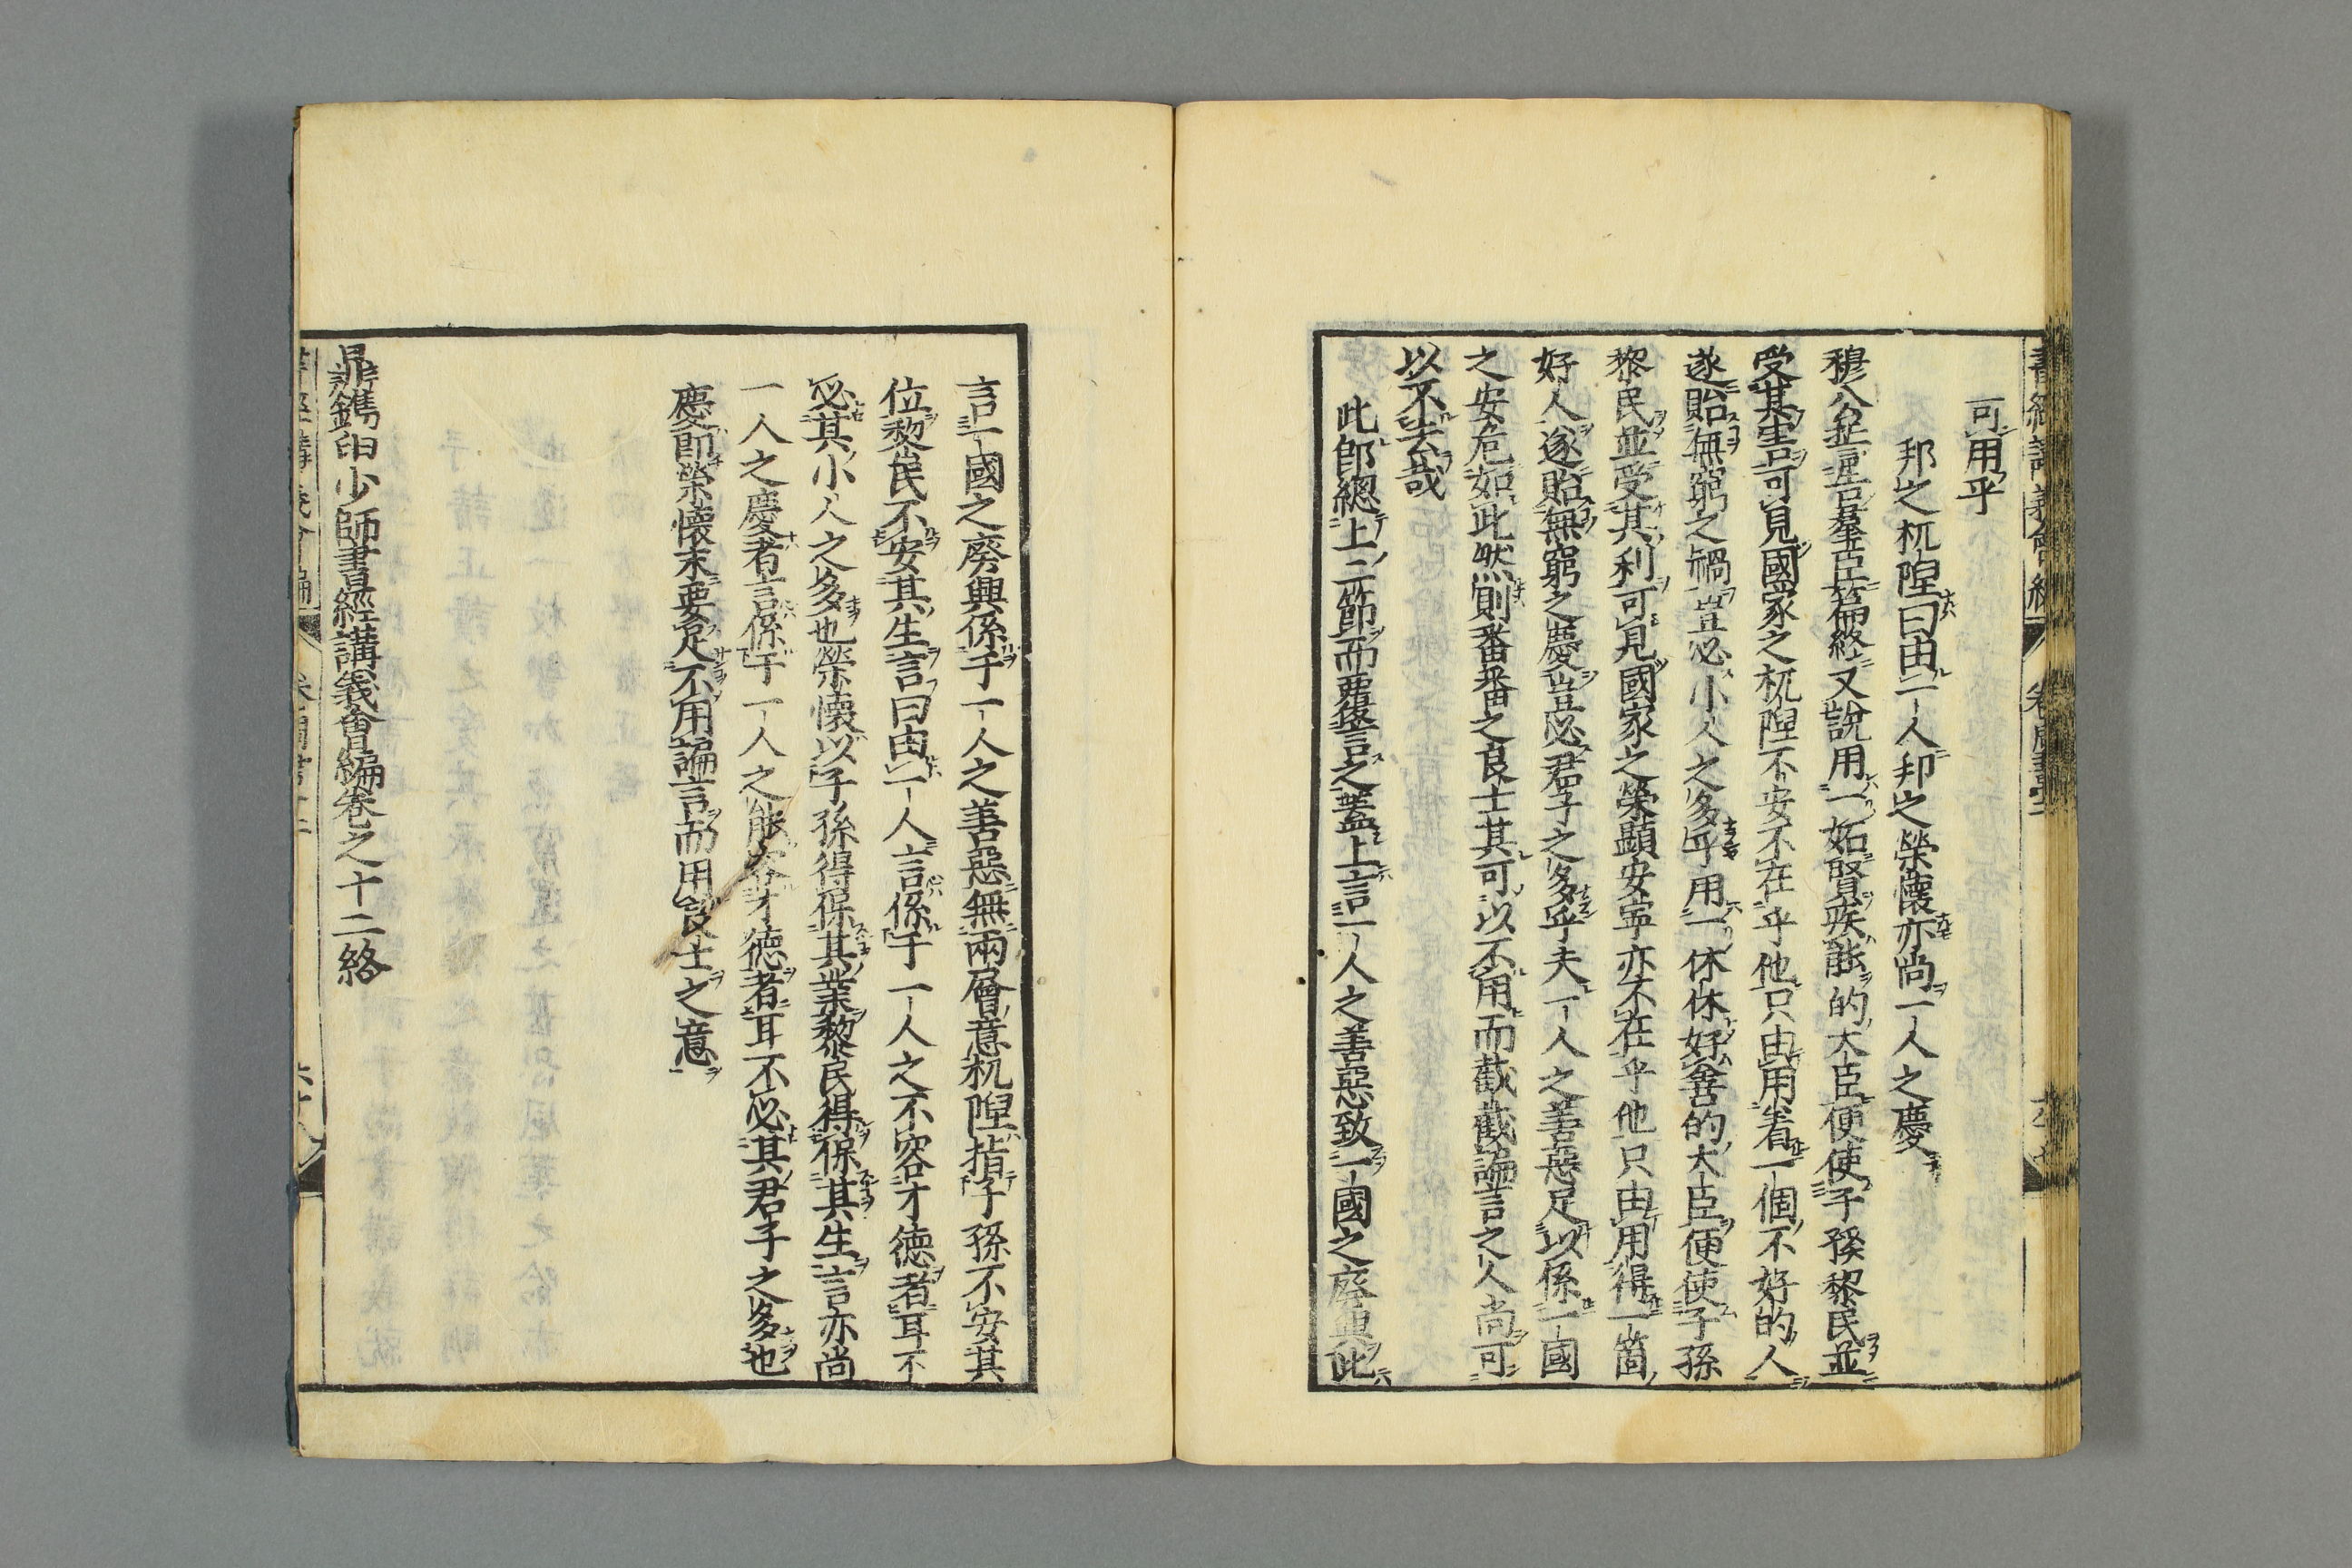 可用乎
邦之杌隉曰由一人邦之榮懷亦尚一人之慶
穆公並言羣臣篇終又說用一妬賢疾能的大臣便使子孫黎民並
受其害可見國家之杌隉不安不在乎他只由用着一個不好的人
遂貽無窮之禍豈必小人之多乎用一休休好善的大臣便使子孫
黎民並受其利可見國家之榮顯安寧亦不在乎他只由用得一箇
好人遂貽無窮之慶豈必君子之多乎夫一人之善惡足以係一國
之安危如此然則番番之良士其可以不用而截截諞言之人尚可
以不去哉
此節總上二節而覆言之葢上言一人之善惡致一國之廃興此
言一國之廃興係于一人之善惡無兩層意杌隉指子孫不安其
位黎民不安其生言曰由一人言係于一人之不容才德者耳不
必其小人之多也榮懷以子孫得保其業黎民得保其生言亦尚
一人之慶者言係于一人之能容才德者耳不必其君子之多也
慶即榮懷末要足不用諞言而用良士之意
鼎鐫申少師書經講義會編卷之十二終